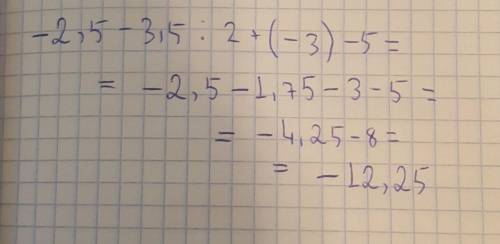 -2,5 - 3,5 : 2 + (-3) - 5 =
= -2,5 - 1,75 - 3 - 5 =
= -4,25 - 8 =
= -12,25